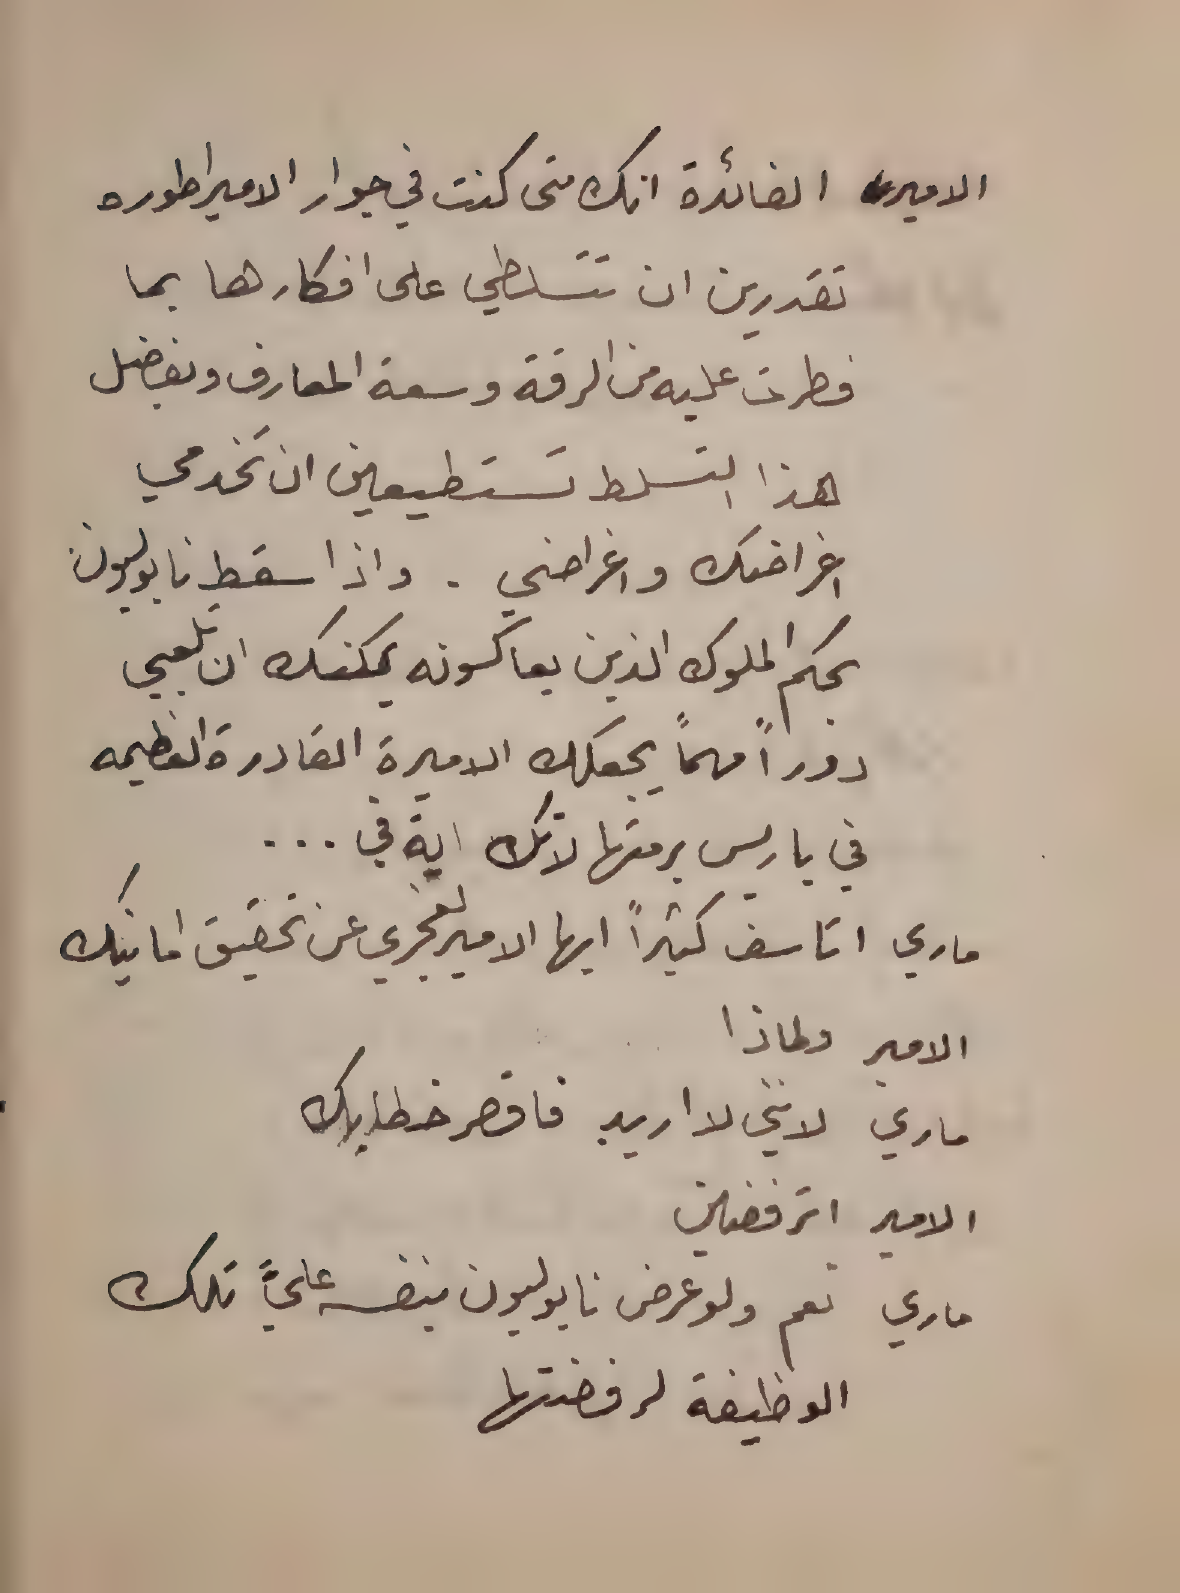 الامير الفائدة انك متى كنت في جوار الاميراطوره
تقدرين ان تتسلطي على افكارها بما
فطرت عليه من الرقة وسعة المعارف وبفضل
هذا التسلط تستطيعين ان تخدمي
اغراضك واغراضي . واذا سقط نابوليون
بحكم الملوك الذين يعاكسونه يمكنك ان تلعبي
دوراً مهماً يجعلك الاميرة القادرة العظيمه
في باريس برمتها لانك اية في ...
ماري اتاسف كثيراً ايها الامير لعجزي عن تحقيق امانيك
الامير ولماذا
ماري لانني لا اريد فاقصر خطابك
الامير اترفضين
ماري نعم ولو عرض نابوليون بنفسه عليَّ تلك
الوظيفة لرفضتها